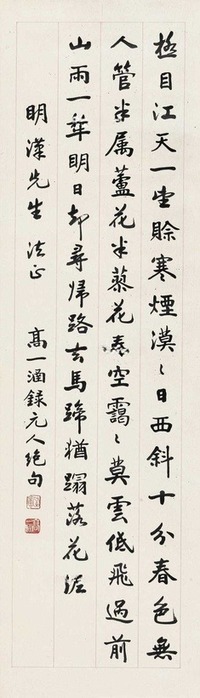 極目江天一望賒寒煙漠〻日西斜十分春色無
人管半属蘆花半蓼花春空靄〻莫雲低飛過前
山雨一犂明日却尋歸路去馬蹄猶蹋落花泥
明漢先生 法正 高一涵録元人絶句